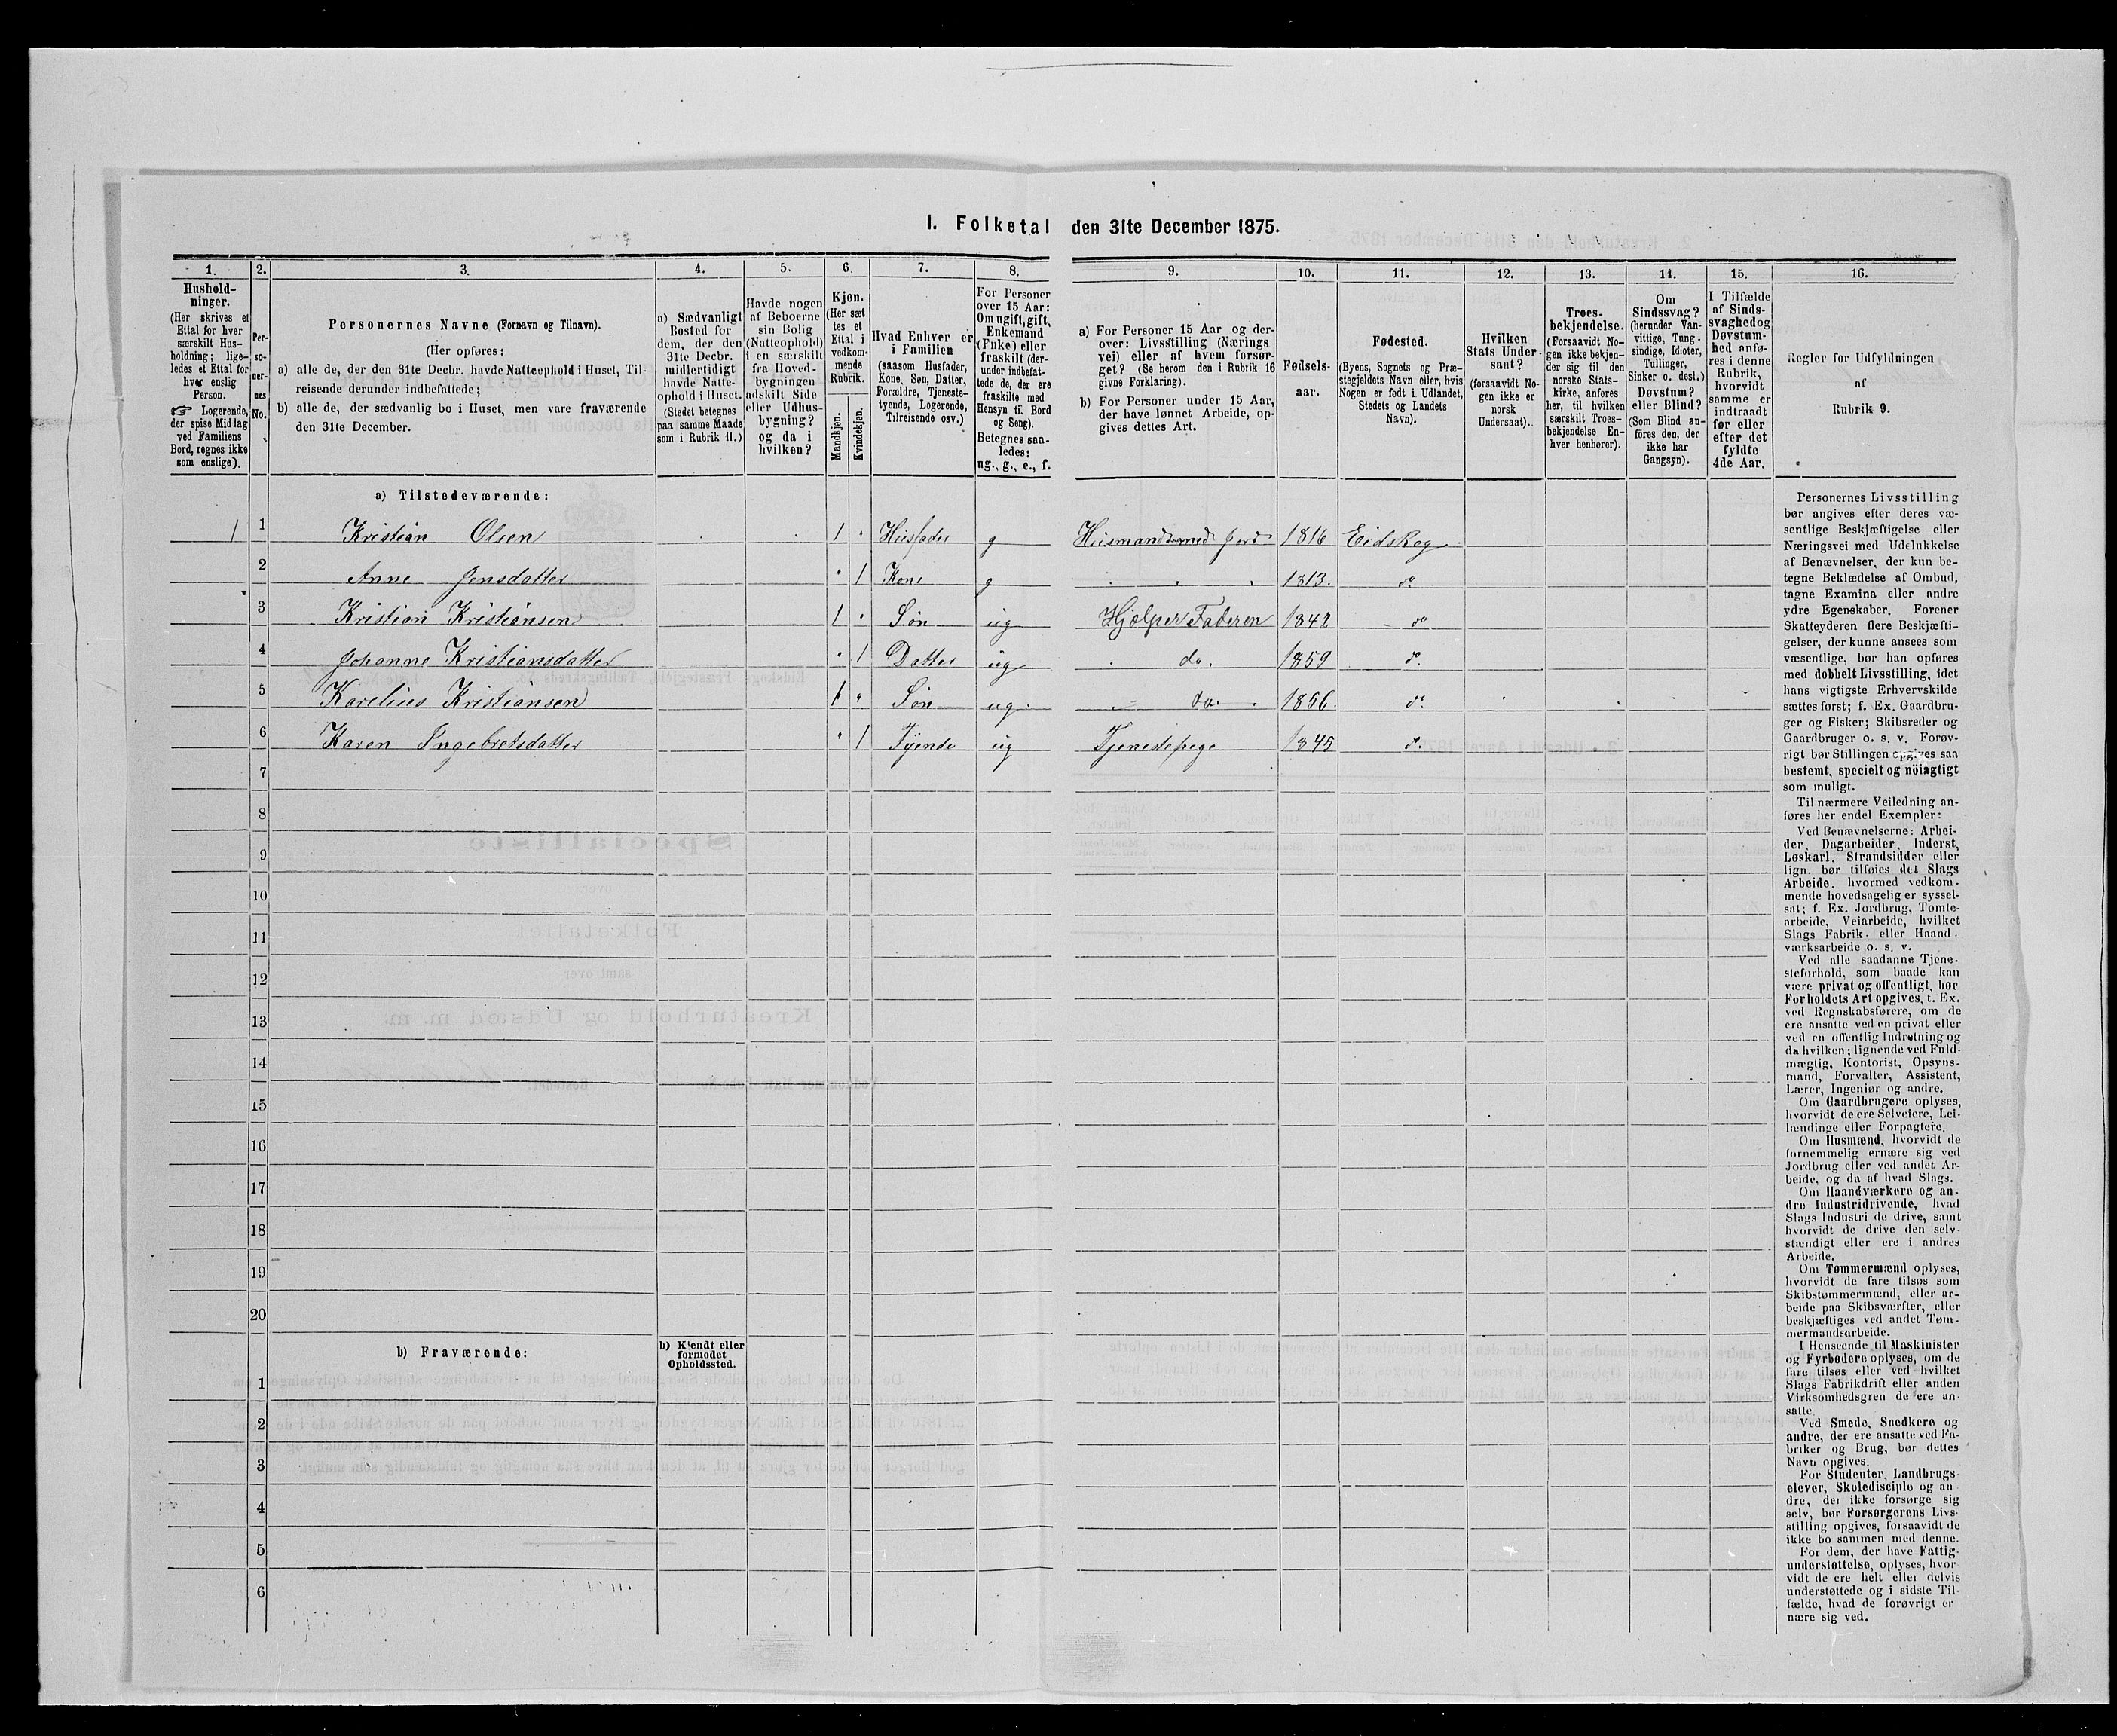 I. Folketal den 31te December 1875.
1. 2. 3. 4. 5. 6. 7. 8. 9. 10. 11. 12. 13. 14. 15. 16.
Hushold-
ninger.
(Her skrives et
Ettal for hver
særskilt Hus-
holdning; lige-
ledes et Ettal for
hver enslig
Person.
☞ Logerende,
der spise Middag
ved Familiens
Bord, regnes ikke
som enslige).
Per-
so-
ner-
nes
No.
Personernes Navne (Fornavn og Tilnavn).
(Her opføres:
a) alle de, der den 31te Decbr. havde Natteophold i Huset, Til-
reisende derunder indbefattede;
b) alle de, der sædvanlig bo i Huset, men vare fraværende
den 31te December.
a) Sædvanligt
Bosted for
dem, der den
31te Decbr.
midlertidigt
havde Natte-
ophold i Huset.
(Stedet betegnes
paa samme Maade
som i Rubrik 11.)
Havde nogen
af Beboerne
sin Bolig
(Natteophold)
i en særskilt
fra Hoved-
bygningen
adskilt Side
eller Udhus-
bygning?
og da i
hvilken?
Kjøn.
(Her sæt
tes et
Ettal i
vedkom-
mende
Rubrik.
Mandkjøn.
Kvindekjøn.
Hvad Enhver er
i Familien
(saasom Husfader,
Kone, Søn, Datter,
Forældre, Tjeneste-
tyende, Logerende,
Tilreisende osv.)
For Personer
over 15 Aar:
Om ugift, gift,
Enkemand
(Enke) eller
fraskilt (der-
under indbefat-
tede de, der ere
fraskilte med
Hensyn til Bord
og Seng).
Betegnes saa-
ledes:
ug., g., e., f.
a) For Personer 15 Aar og der-
over: Livsstilling (Nærings
vei) eller af hvem forsør-
get? (Se herom den i Rubrik 16
givne Forklaring).
b) For Personer under 15 Aar,
der have lønnet Arbeide, op-
gives dettes Art.
Fødsels-
aar.
Fødested.
(Byens, Sognets og Præ-
stegjeldets Navn eller, hvis
Nogen er født i Udlandet,
Stedets og Landets
Navn).
Hvilken
Stats Under-
saat?
(forsaavidt No-
gen ikke er
norsk
Undersaat).
Troes-
bekjendelse.
(Forsaavidt No-
gen ikke bekjen-
der sig til den
norske Stats-
kirke, anføres
her, til hvilken
særskilt Troes-
bekjendelse En-
hver henhører).
Om
Sindssvag?
(herunder Van-
vittige, Tung-
sindige, Idioter,
Tullinger,
Sinker o. desl.)
Døvstum?
eller Blind?
(Som Blind an-
føres den, der
ikke har
Gangsyn).
I Tilfælde
af Sinds-
svaghed og
Døvstum-
hed anfø-
res i denne
Rubrik,
hvorvidt
samme er
indtraadt
før eller
efter det
fyldte
4de Aar.
Regler for Udfyldningen
af
Rubrik 9.
a) Tilstedeværende:
1 1 Kristian Olsen 1 Husfader g Husmand med Jord 1816 Eidskog
2 Anne Jensdatter 1 Kone g 1813. do
3 Kristian Kristiansen 1 Søn ug Hjælper Faderen 1842 do
4 Johanne Kristiansdatter 1 Datter ug do. 1859 do
5 Karelius Kristiansen 1 Søn ug. do. 1856. do
6 Karen Ingebretsdatter 1 Tjende ug Tjenestepige 1845 do
7
8
9
10
11
12
13
14
15
16
17
18
19
20
b) Fraværende:
b) Kjendt eller
formodet
Opholdssted.
1
2
3
4
5
6
Personernes Livsstilling
bør angives efter deres væ-
sentlige Beskjæftigelse eller
Næringsvei med Udelukkelse
af Benævnelser, der kun be-
tegne Beklædelse af Ombud,
tagne Examina eller andre
ydre Egenskaber. Forener
Skatteyderen flere Beskjæfti-
gelser, der kunne ansees som
væsentlige, bør han opføres
med dobbelt Livsstilling, idet
hans vigtigste Erhvervskilde
sættes først; f. Ex. Gaardbru-
ger og Fisker; Skibsreder og
Gaardbruger o. s. v. Forøv-
rigt bør Stillingen opgives saa
bestemt, specielt og nöiagtigt
som muligt.
Til nærmere Veiledning an-
føres her endel Exempler:
Ved Benævnelserne: Arbei-
der, Dagarbeider, Inderst,
Løskarl, Strandsidder eller
lign. bør tilføies det Slags
Arbeide, hvormed vedkom-
mende hovedsagelig er syssel-
sat; f. Ex. Jordbrug, Tomte-
arbeide, Veiarbeide, hvilket
Slags Fabrik- eller Haand-
værksarbeide o. s. v.
Ved alle saadanne Tjene-
steforhold, som baade kan
være privat og offentligt, bør
Forholdets Art opgives, t. Ex.
ved Regnskabsførere, om de
ere ansatte ved en privat eller
ved en offentlig Indretning og
da hvilken; lignende ved Fuld-
mægtig, Kontorist, Opsyns-
mand, Forvalter, Assistent,
Lærer, Ingeniør og andre.
Om Gaardbrugere oplyses,
hvorvidt de ere Selveiere, Lei-
lændinge eller Forpagtere.
Om Husmænd, hvorvidt de
fornemmelig ernære sig ved
Jordbrug eller ved andet Ar-
beide, og da af hvad Slags.
Om Haandværkere og an-
dre Industridrivende, hvad
Slags Industri de drive, samt
hvorvidt de drive den selv-
stændigt eller ere i andres
Arbeide.
Om Tømmermænd oplyses,
hvorvidt de fare tilsøs som
Skibstømmermænd, eller ar-
beide paa Skibsværfter, eller
beskjæftiges ved andet Tøm-
mermandsarbeide.
I Henseende til Maskinister
og Fyrbødere oplyses, om de
fare tilsøs eller ved hvilket
Slags Fabrikdrift eller anden
Virksomhedsgren de ere an-
satte.
Ved Smede, Snedkere og
andre, der ere ansatte ved Fa-
briker og Brug, bør dettes
Navn opgives.
For Studenter, Landbrugs-
elever, Skoledisciple og an-
dre, der ikke forsørge sig
selv, bør Forsørgerens Livs-
stilling opgives, forsaavidt de
ikke bo sammen med denne.
For dem, der have Fattig-
understøttelse, oplyses, hvor-
vidt de ere helt eller delvis
understøttede og i sidste Til-
fælde, hvad de forøvrigt er
nære sig ved.